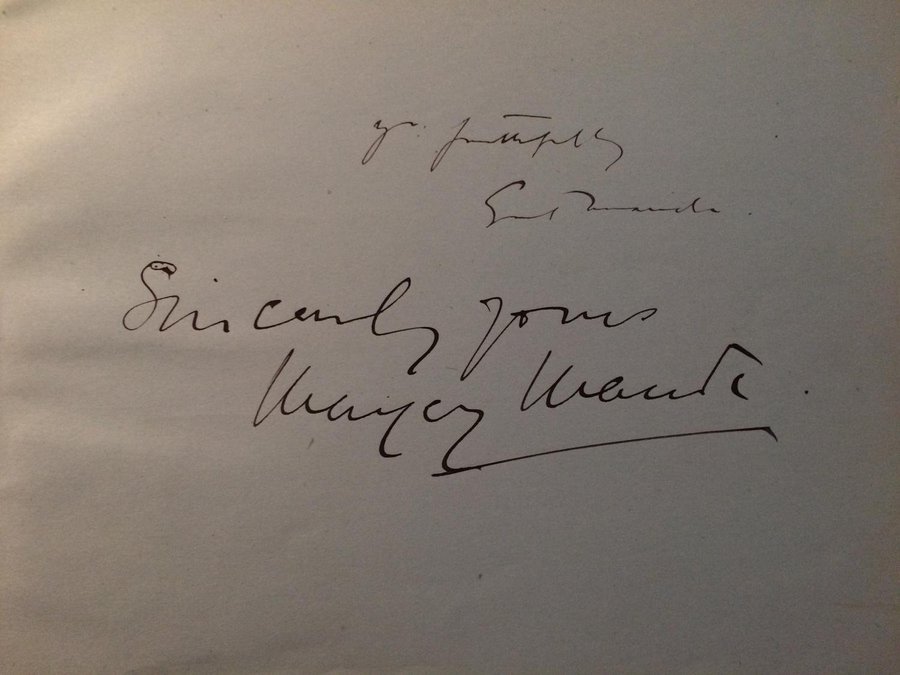 yrs. faithfully
Cyril Maude.
Sincerely yours
Margery Maude.